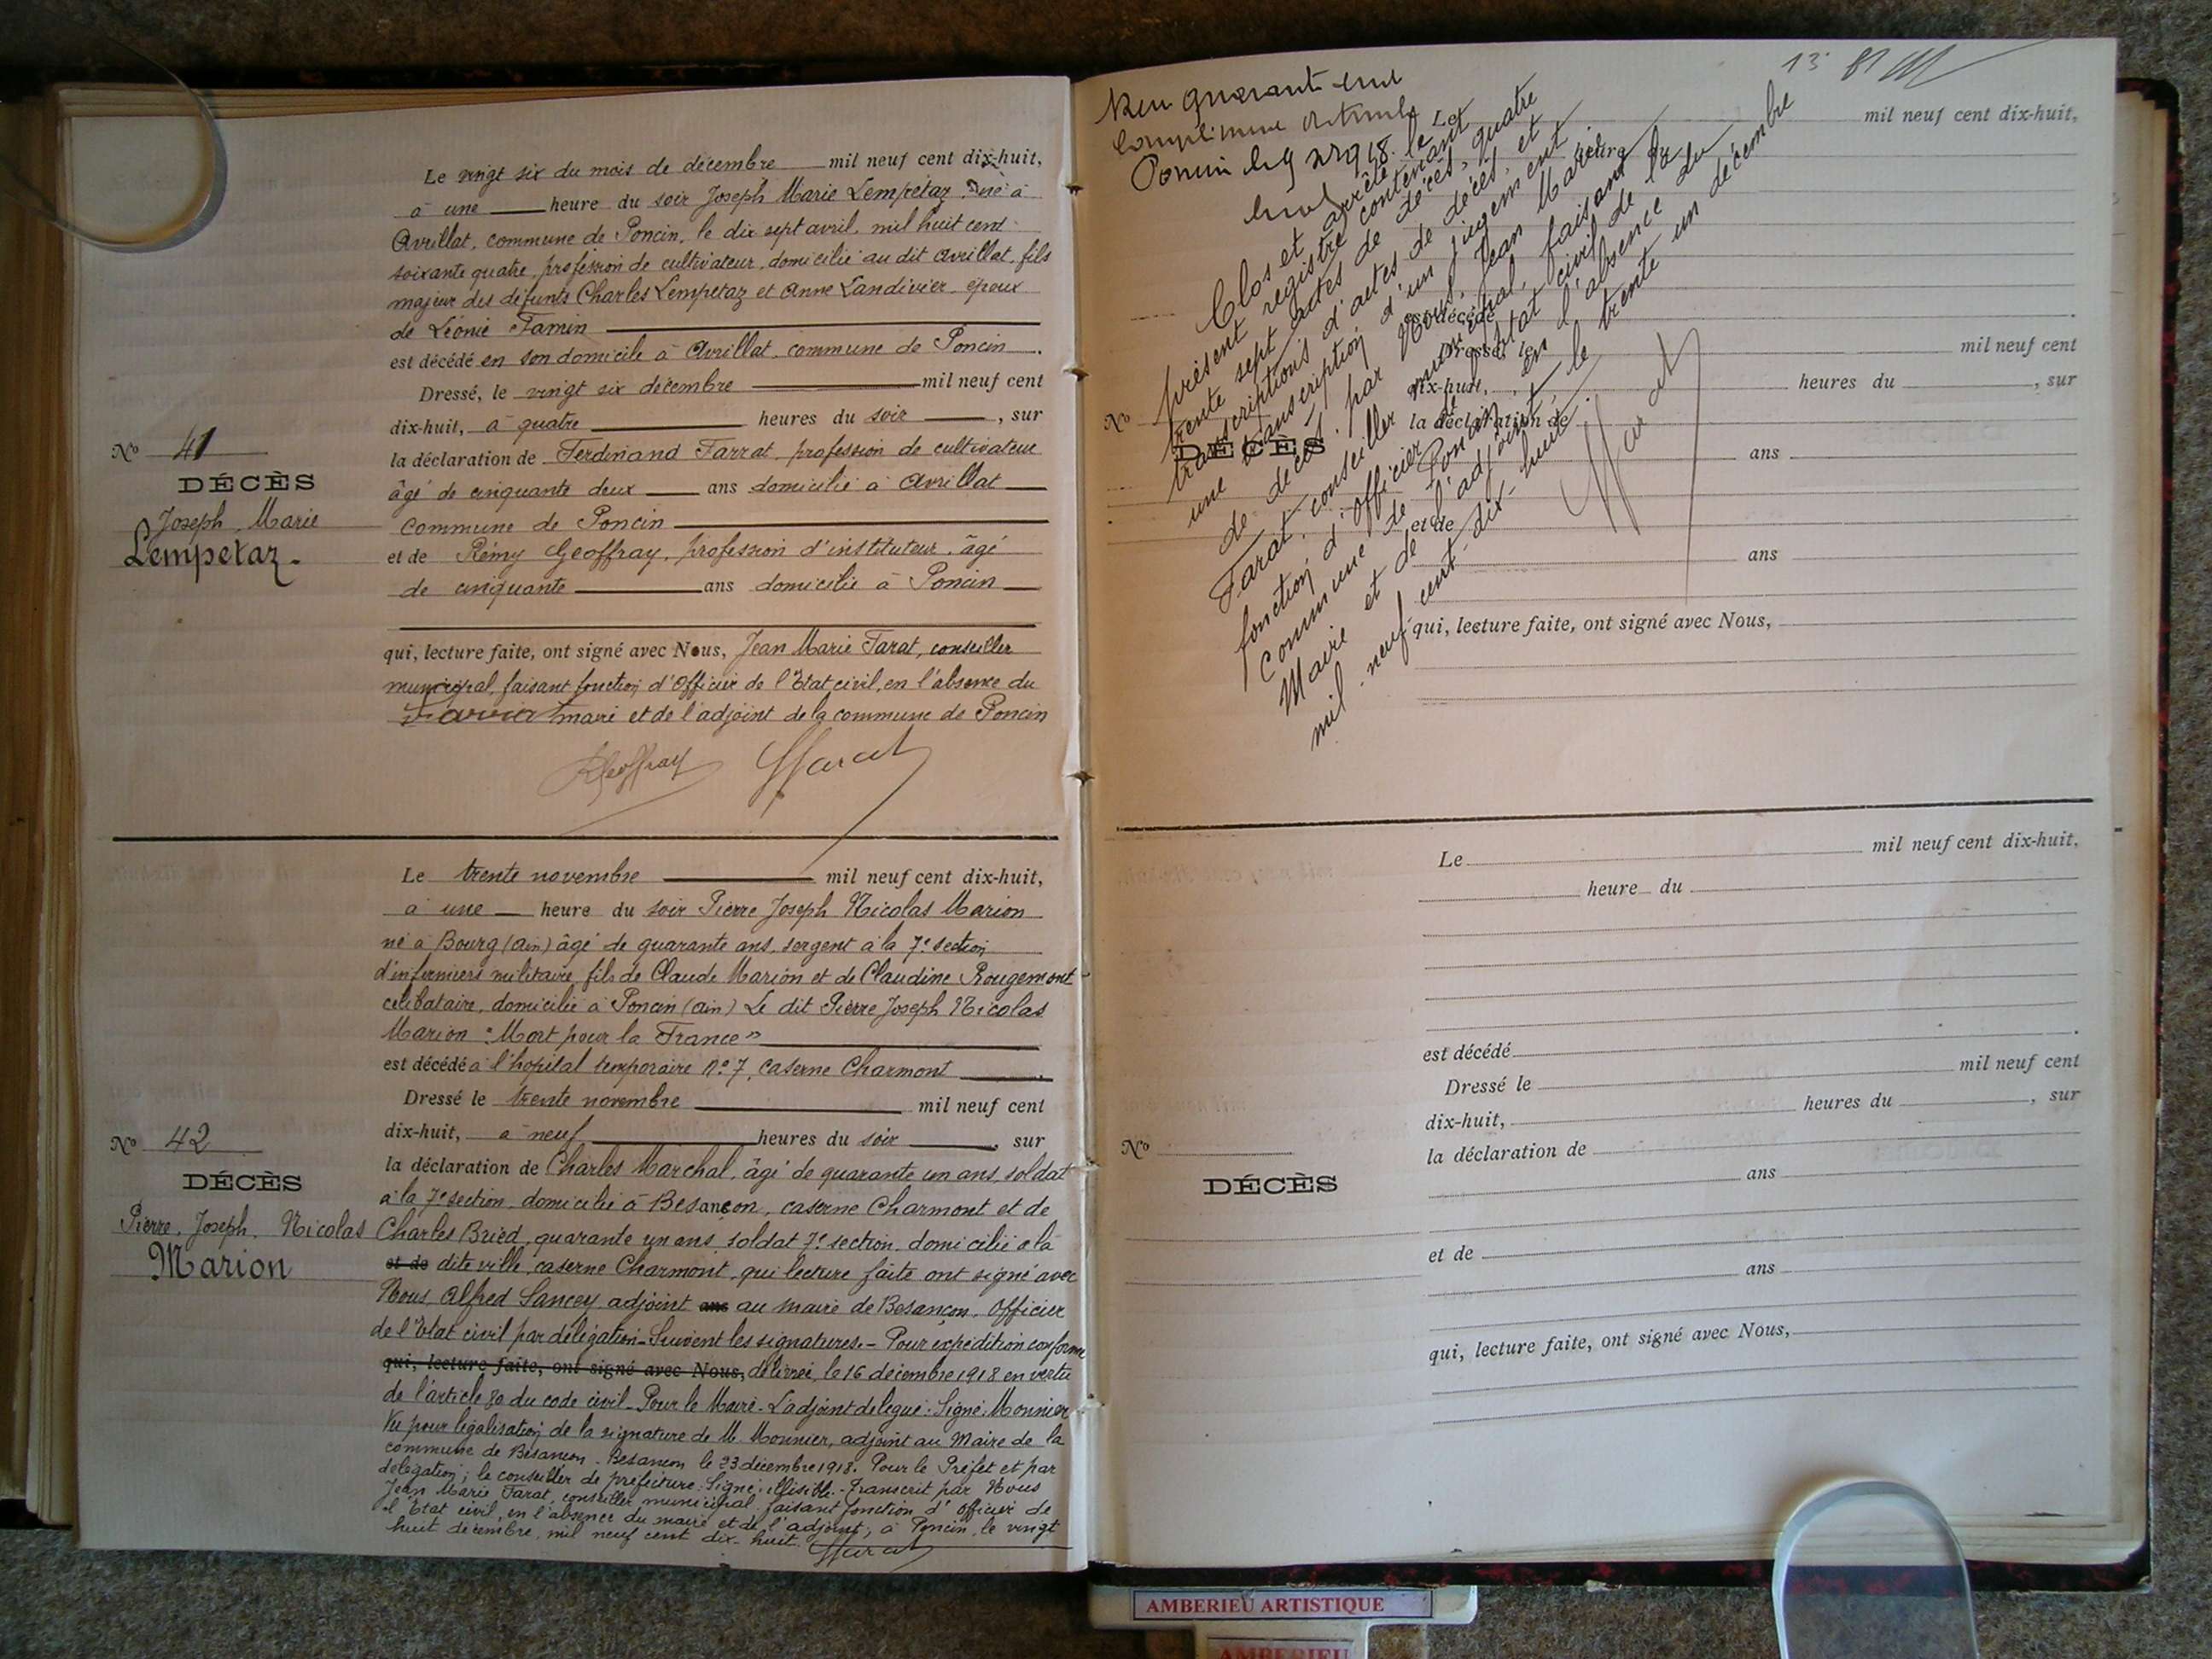 Le vingt six du mois de décembre mil neuf cent dix-huit,
à une heure du soir Joseph Marie Lempetaz, né à
Avrillat, commune de Poncin, le dix sept avril, mil huit cent
soixante quatre, profession de cultivateur, domicilié au dit Avrillat, fils
majeur des défunts Charles Lempetaz et Anne Landivier, époux
de Léonie Tamin
est décédé en son domicile à Avrillat, commune de Poncin.
Dressé, le vingt six décembre mil neuf cent
dix-huit, à quatre heures du soir, sur
la déclaration de Ferdinand Farrat, profession de cultivateur
âgé de cinquante deux ans domicilié à Avrillat
commune de Poncin
et de Rémy Geoffray, profession d'instituteur, âgé
de cinquante ans domicilié à Poncin
qui, lecture faite, ont signé avec Nous, Jean Marie Tarat, conseiller
municipal, faisant fonction d'Officier de l'Etat civil, en l'absence du
maire et de l'adjoint de la commune de Poncin
RGeoffray
No 41
DÉCÈS
Joseph Marie
Lempetaz.
Le trente novembre mil neuf cent dix-huit,
à une heure du soir Pierre Joseph Nicolas Marion
né à Bourg (Ain) âgé de quarante ans, sergent à la 7e section
d'infirmiers militaire, fils de Claude Marion et de Claudine Rougemont
célibataire, domicilié à Poncin (Ain) Le dit Pierre Joseph Nicolas
Marion "Mort pour la France"
est décédé à l'hôpital temporaire No 7, caserne Charmont
Dressé le trente novembre mil neuf cent
dix-huit, à neuf heures du soir, sur
la déclaration de Charles Marchal, âgé de quarante un ans, soldat
à la 7e section, domicilié à Besançon, caserne Charmont et de
Charles Bried, quarante un ans, soldat 7e section, domicilié à la
et de dite ville, caserne Charmont, qui lecture faite ont signé avec
Nous, Alfred Sancey adjoint ans au maire de Besançon, Officier
de l'Etat civil par délégation - Suivent les signatures. - Pour expédition conforme
qui, lecture faite, ont signé avec Nous, délivrée, le 16 décembre 1918 en vertu
de l'article 80 du code civil - Pour le Maire - L'adjoint délégué: Signé: Mounier
Vu pour légalisation de la signature de M. Mounier, adjoint au Maire de la
commune de Besançon - Besançon le 23 décembre 1918. Pour le Préfet et par
délégation; le conseiller de préfecture: Signé: illisible. - Transcrit par Nous
Jean Marie Tarat, conseiller municipal faisant fonction d'Officier de
l'Etat civil, en l'absence du maire et de l'adjoint, à Poncin, le vingt
huit décembre, mil neuf cent dix-huit.
No 42
DÉCÈS
Pierre, Joseph, Nicolas
Marion
Clos et arrêté le
présent registre contenant
trente sept actes de décès, quatre
transcriptions d'actes de décès, et
une transcription d'un jugement
de décès, par Nous, Jean Marie
Tarat, conseiller municipal, faisant
fonction d'Officier de l'Etat civil de la
commune de Poncin, en l'absence du
Maire et de l'adjoint, le trente un décembre
mil neuf cent dix-huit.
Le mil neuf cent dix-huit,
heure
est décédé
Dressé le mil neuf cent
dix-huit, heures du , sur
la déclaration de
ans
et de
ans
qui, lecture faite, ont signé avec Nous,
No
DÉCÈS
Le mil neuf cent dix-huit,
heure du
est décédé
Dressé le mil neuf cent
dix-huit, heures du , sur
la déclaration de
ans
et de
ans
qui, lecture faite, ont signé avec Nous,
No
DÉCÈS
AMBERIEU ARTISTIQUE
AMBERIEU